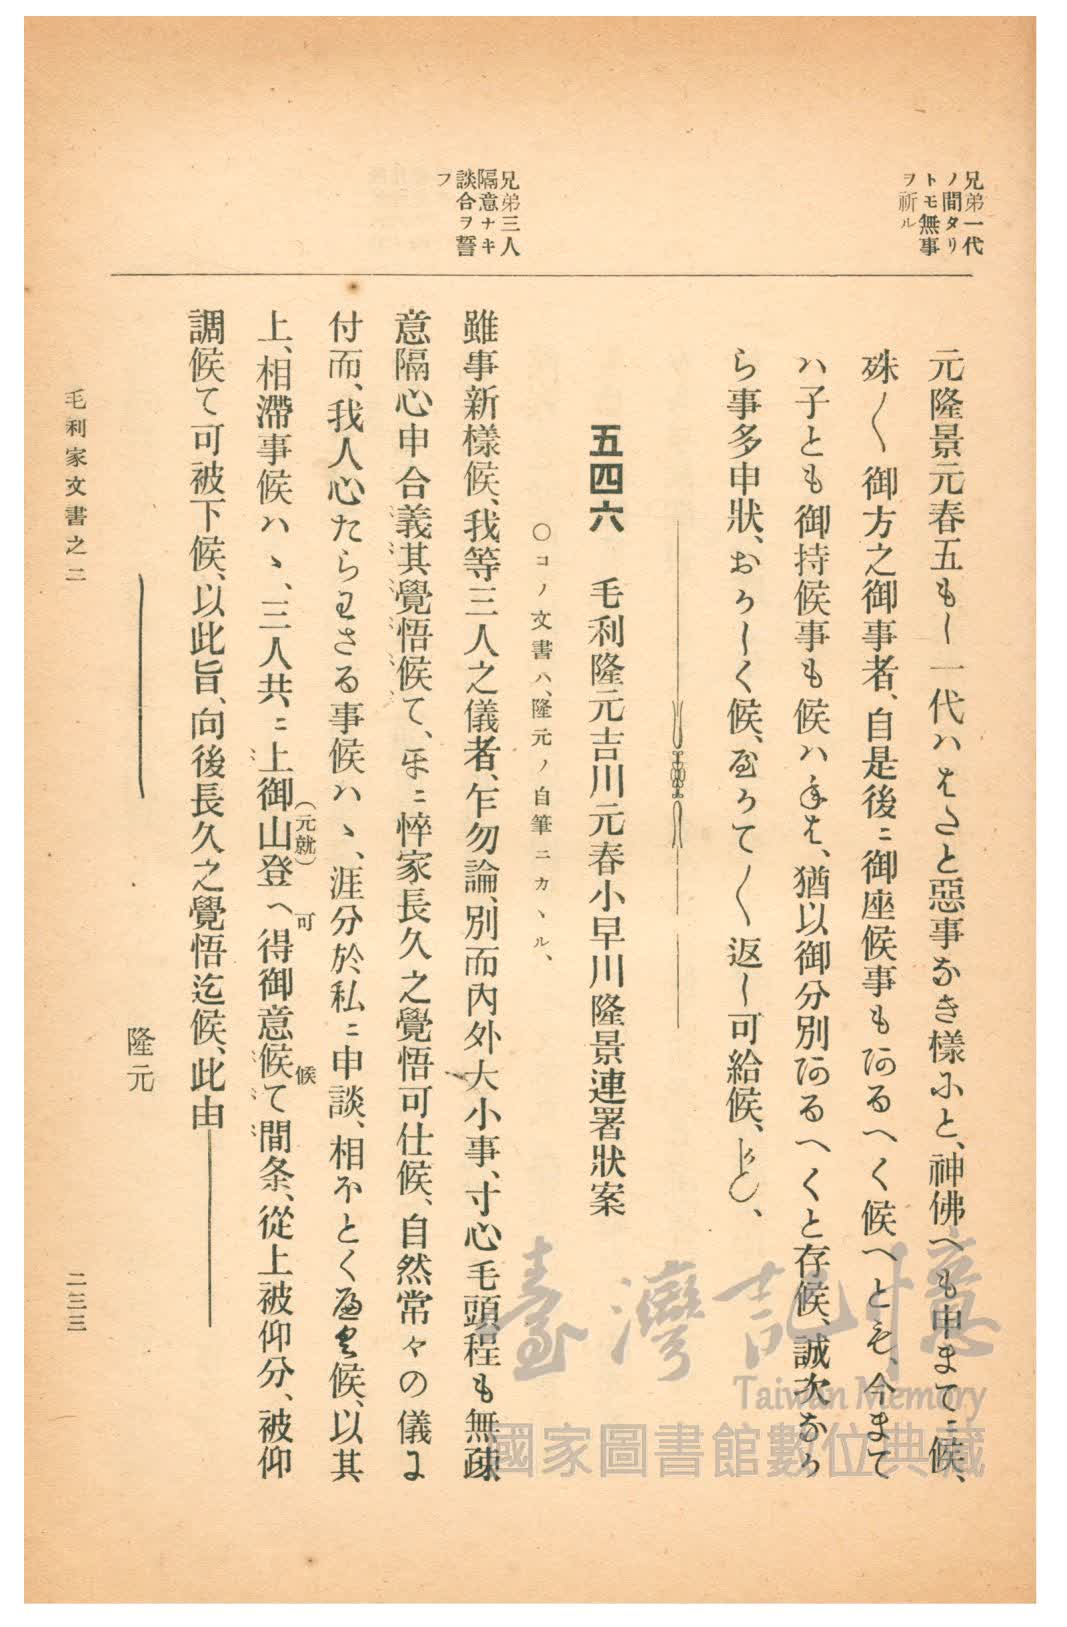 兄弟一代
ノ間タリ
トモ無事
ヲ祈ル
兄弟三人
隔意ナキ
談合ヲ誓
フ
元隆景元春五もし一代ハはたと惡事なき様にと、神佛へも申まて候、
殊〳〵御方之御事者、自是後ニ御座候事も可有るへく候へとも、今まて
ハ子とも御持候事も候ハねは、猶以御分別可有るへくと存候、誠次なか
ら事多申狀、おかしく候、やかて〳〵返し可給候、かしく、
五四六　毛利隆元吉川元春小早川隆景連署狀案
○コノ文書ハ、隆元ノ自筆ニカヽル、
雖事新樣候、我等三人之儀者、乍勿論、別而內外大小事、寸心毛頭程も無疎
意隔心申合義其覺悟候て、まこと二悴家長久之覺悟可仕候、自然常々の儀に
付而、我人心たらわさる事候ハヽ、涯分於私ニ申談、相ほとく へく候、以其
上、相滯事候ハヽ、三人共ニ上御山登へ得御意候て間条、從上被仰分、被仰
（元就）
可
候
調候て可被下候、以此旨、向後長久之覺悟迄候、此由
隆元
毛利家文書之二
二三三
臺灣記憶
Taiwan Memory
國家圖書館數位典藏